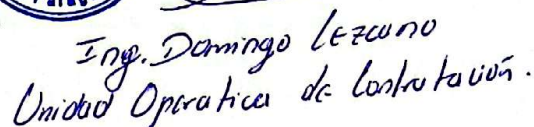 Ing. Domingo Lezcano
Unidad Operativa de Contratación.